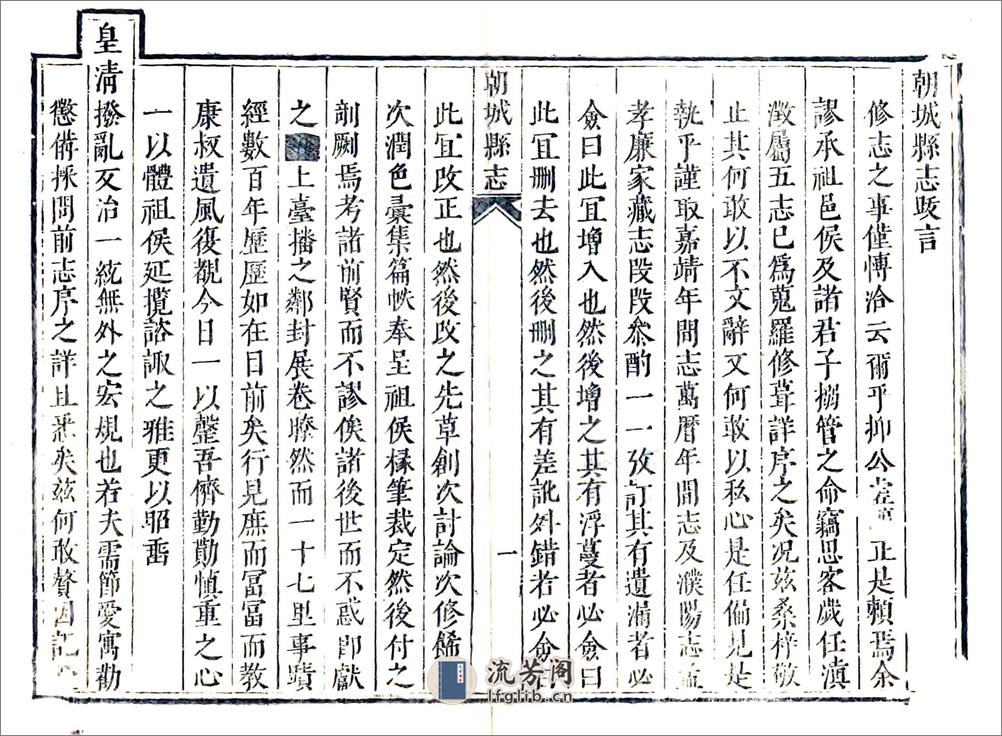 朝城縣志跋言
修志之事僅愽洽云爾乎抑公是正是賴焉余
謬承祖邑侯及諸君子搦管之命竊思客歲任滇
澂屬五志已爲蒐羅修葺詳序之矣况兹桑梓敬
止其何敢以不文辭又何敢以私心是任偏見是
執乎謹取嘉靖年間志萬曆年間志及濮陽志孟
孝廉家藏志段段叅酌一一攷訂其有遺漏者必
僉曰此宜增入也然後增之其有浮蔓者必僉曰
此宜刪去也然後刪之其有差訛舛錯者必僉
朝城縣志
一
此宜改正也然後改之先草創次討論次修餙
次潤色彙集篇帙奉呈祖侯椽筆裁定然後付之
剞劂焉考諸前賢而不謬俟諸後世而不惑卽獻
之上臺播之鄰封展卷瞭然而一十七里事蹟
經數百年歷歷如在目前矣行見庶而冨冨而教
康叔遺風復覩今日一以墾吾儕勤勤慎重之心
一以體祖侯延攬諮諏之雅更以昭
皇清撥亂反治一統無外之宏規也若夫需節愛寓勸
懲備採問前志序之詳且悉矣兹何敢贅因記
流芳阁
lfglib.cn